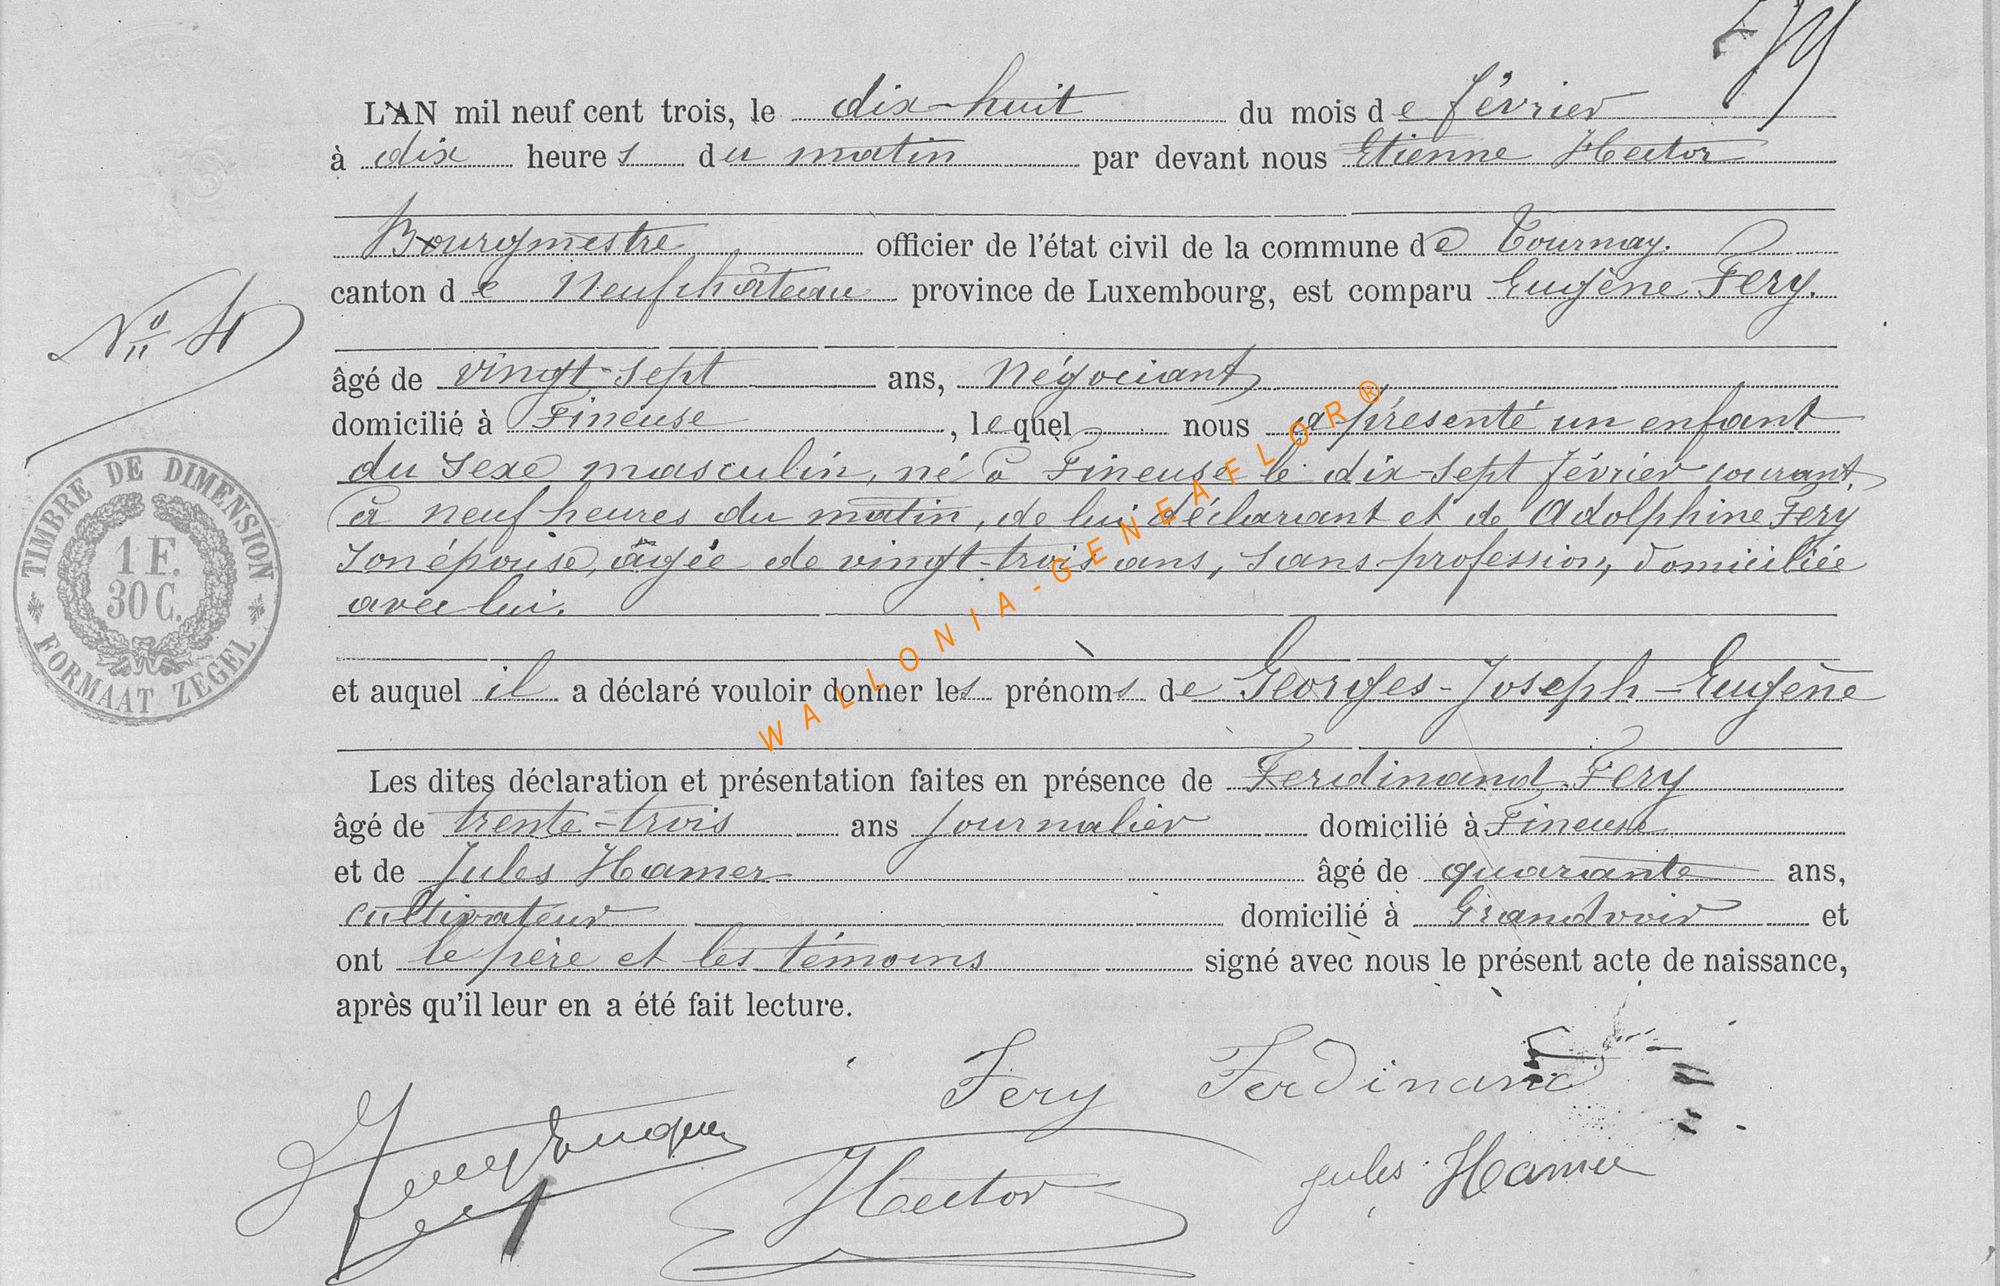 L'AN mil neuf cent trois, le dix-huit du mois de février
à dix heures du matin par devant nous Etienne Hector
Bourgmestre officier de l'état civil de la commune de Tournay.
canton de Neufchâteau province de Luxembourg, est comparu Eugène Fery.
N° 4
âgé de vingt-sept ans, négociant,
domicilié à Fineuse, lequel nous a présenté un enfant
du sexe masculin, né à Fineuse le dix-sept février courant,
à neuf heures du matin, de lui déclarant et de Adolphine Fery
son épouse, âgée de vingt-trois ans, sans profession, domiciliée
avec lui.
et auquel il a déclaré vouloir donner les prénoms de Georges-Joseph-Eugène
Les dites déclaration et présentation faites en présence de Ferdinand Fery
âgé de trente-trois ans journalier domicilié à Fineuse
et de Jules Hamer âgé de quarante ans,
cultivateur domicilié à Grandvoir et
ont le père et les témoins signé avec nous le présent acte de naissance,
après qu'il leur en a été fait lecture.
Fery Ferdinand
Fery Eugène
Hector
Jules Hamer
TIMBRE DE DIMENSION
1 F.
30 C.
FORMAAT ZEGEL
WALLONIA-GENEAFLOR®